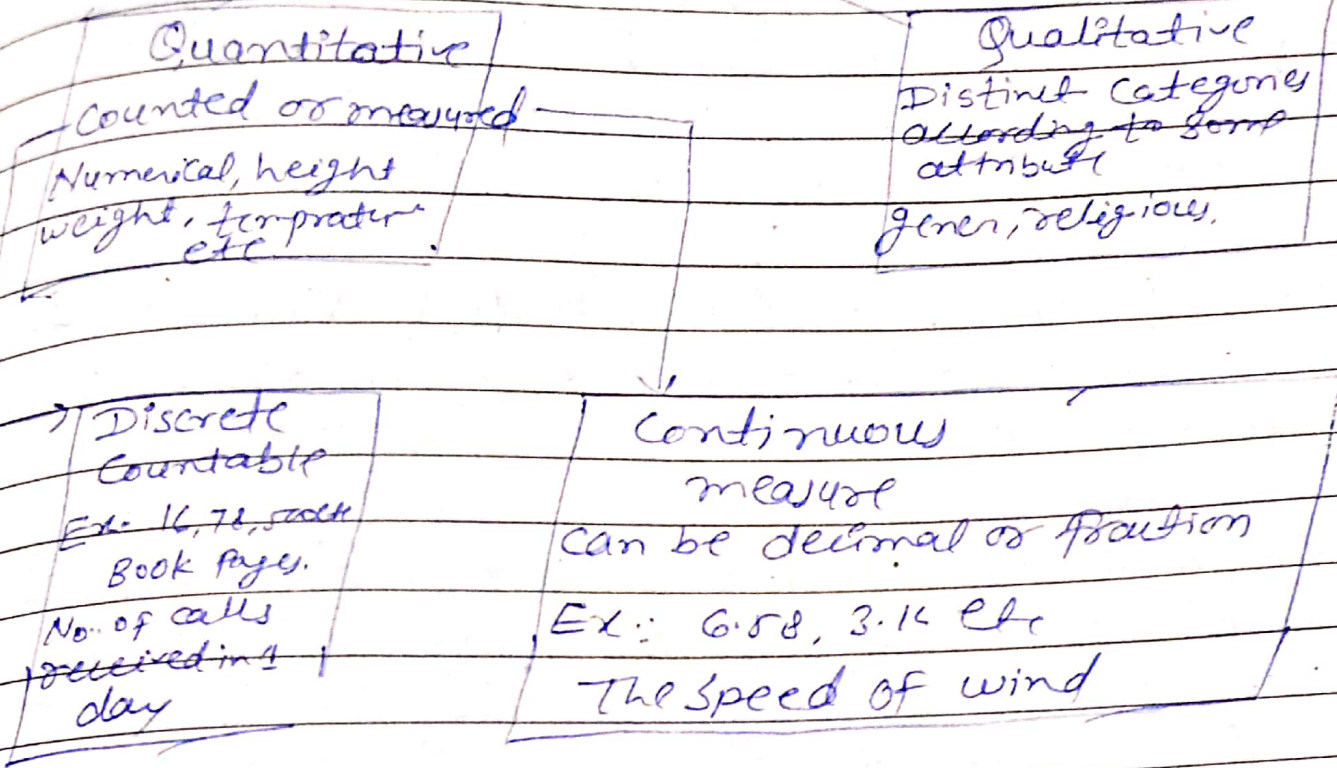 Quantitative
Counted or measured
Numerical, height
weight, temprature
etc
Qualitative
Distinct Categories
according to some
attribute
gener, religious.
Discrete
Countable
Ex:- 16, 78, 500etc
Book Pages.
No. of calls
received in 1
day
Continuous
measure
can be decimal or fraction
Ex:- 6.58, 3.16 etc
The speed of wind